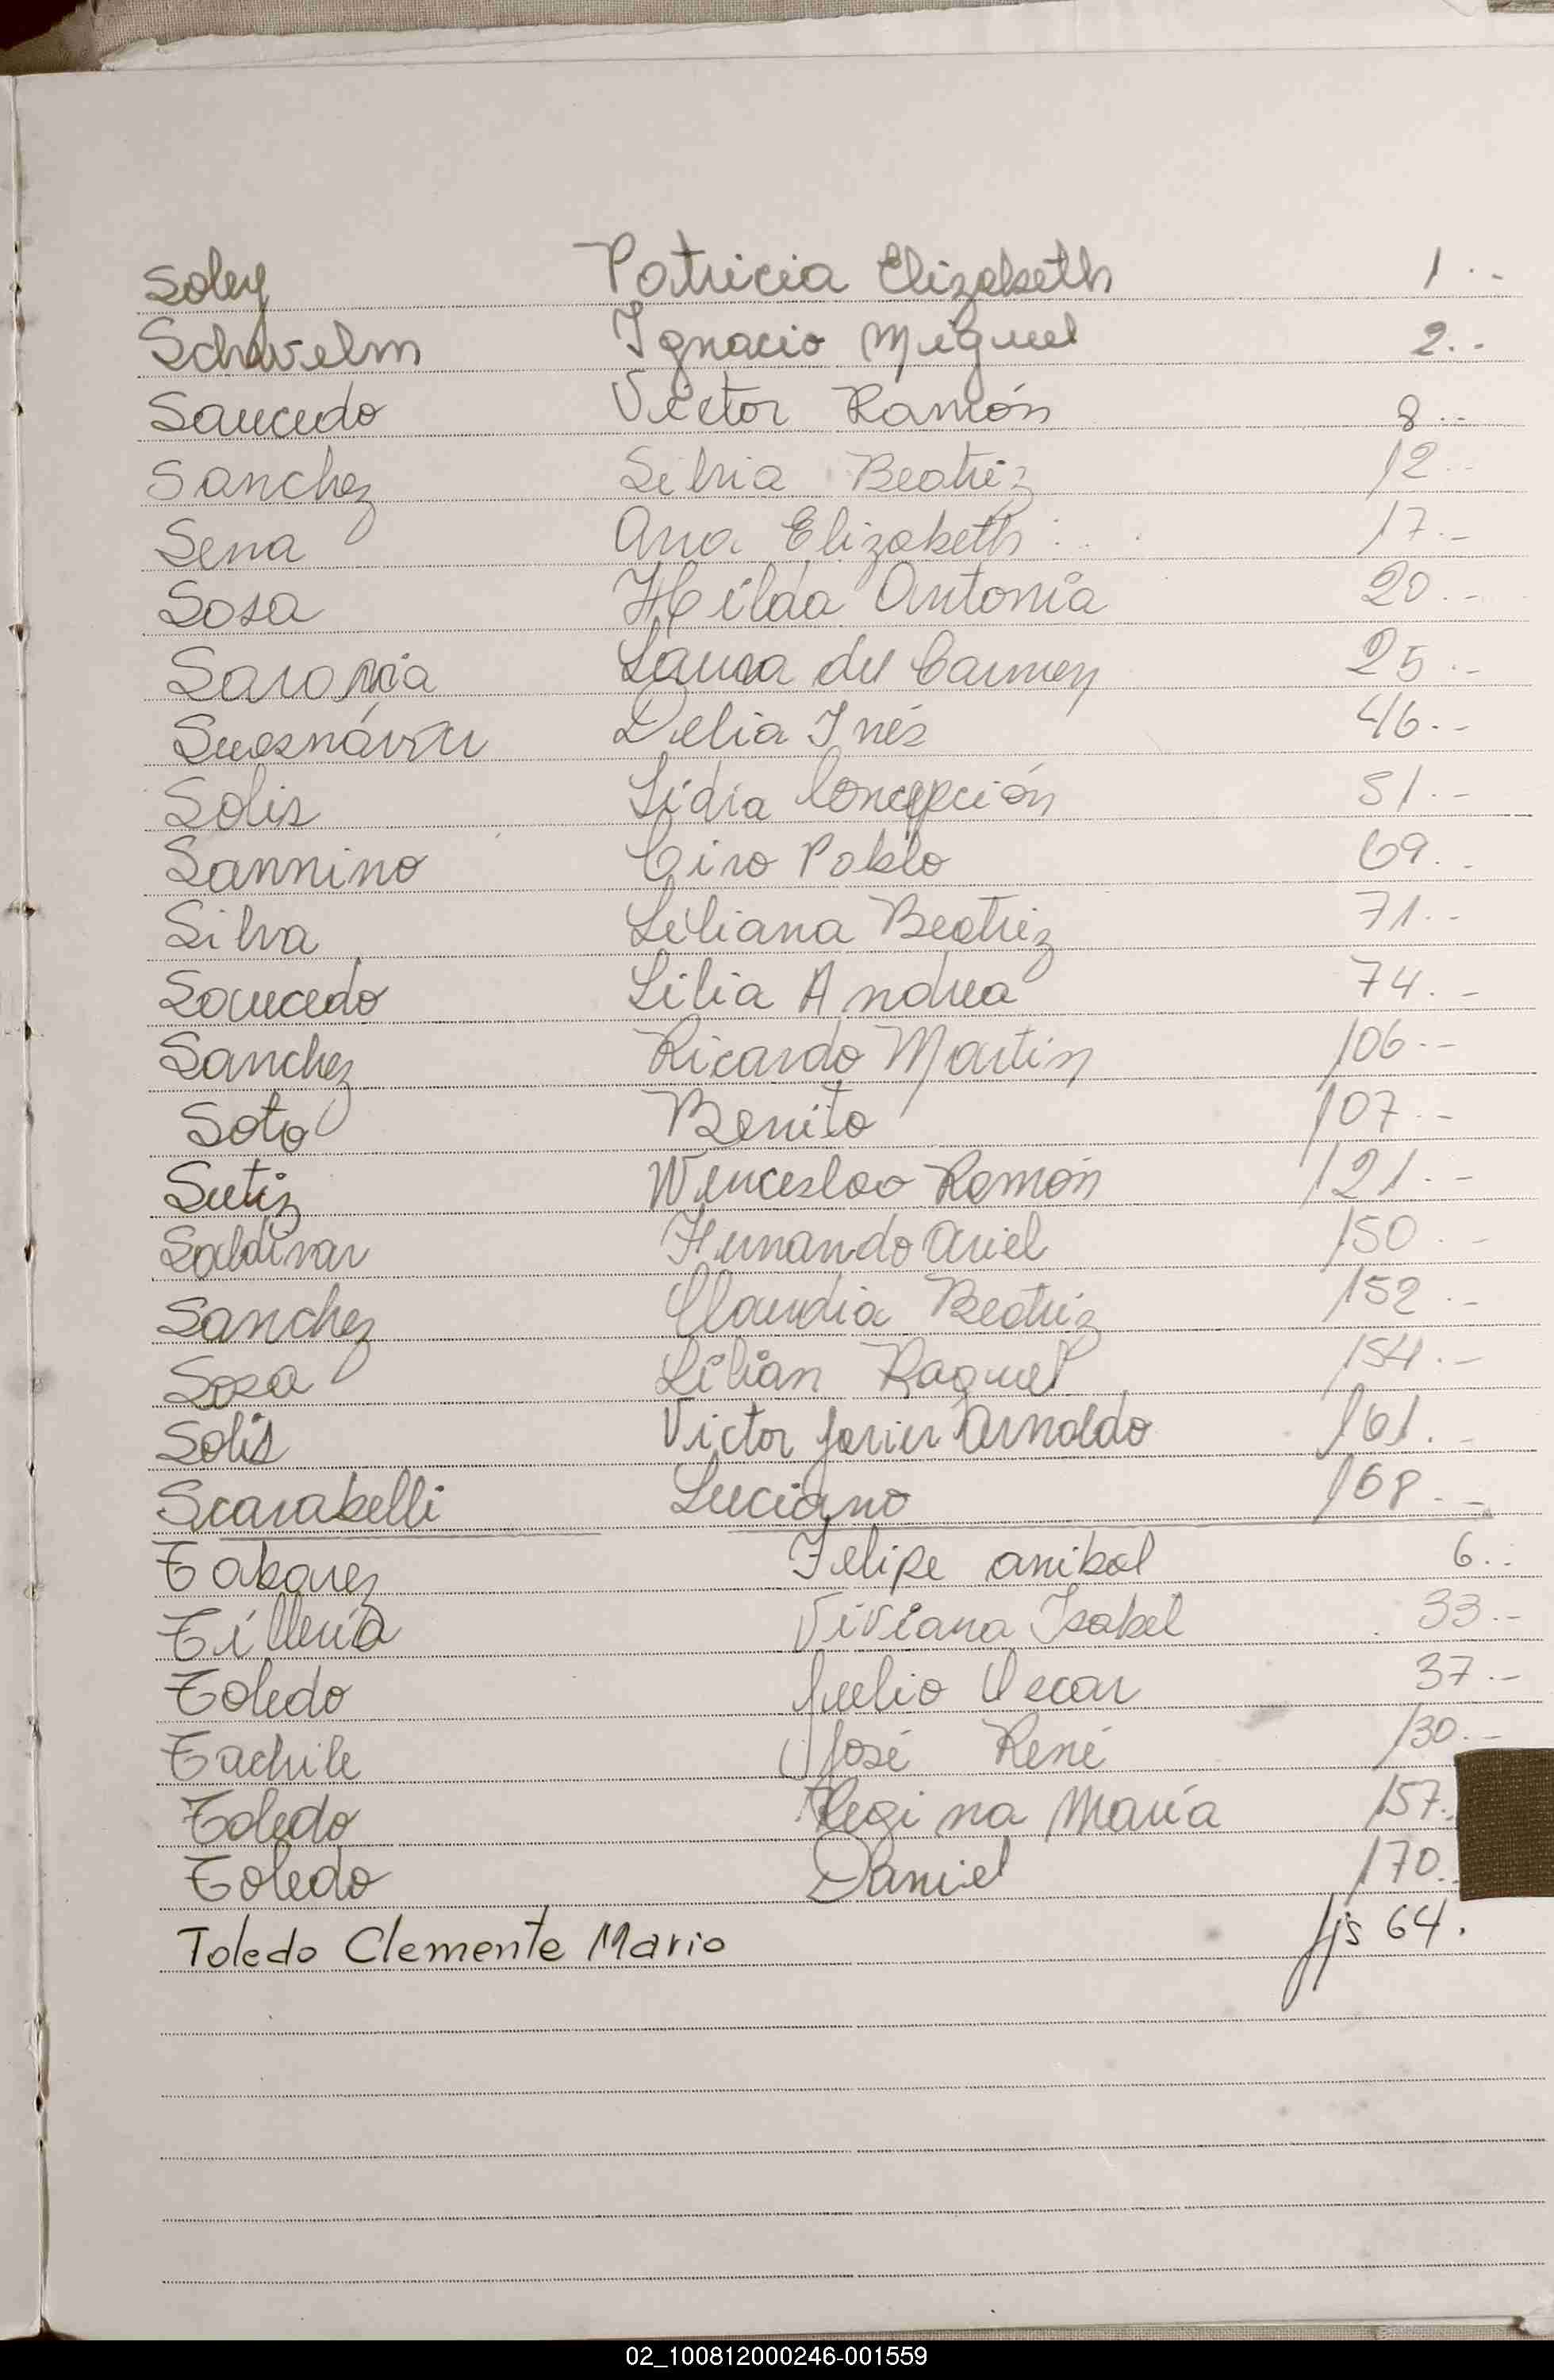 Soley Patricia Elizabeth 1..
Schavelm Ignacio Miguel 2..
Saucedo Victor Ramón 8..
Sanchez Silvia Beatriz 12..
Sena Ana Elizabeth 17..
Sosa Hilda Antonia 20..
Laura del Carmen 25..
Suasnávar Delia Inés 46..
Solis Lidia Concepción 51..
Sannino Ciro Pablo 69..
Silva Liliana Beatriz 71..
Saucedo Lilia Andrea 74..
Sanchez Ricardo Martin 106..
Soto Benito 107..
Sutiz Wenceslao Ramón 121..
Saldivar Hernando Ariel 150..
Sanchez Claudia Beatriz 152..
Sosa Lilian Raquel 154..
Solis Victor Javier Arnoldo 161..
Scarabelli Luciano 168..
Tabarez Felipe Anibal 6..
Tillería Viviana Isabel 33..
Toledo Julio 37..
Tachile José René 130..
Toledo Regina María 157..
Toledo Daniel 170..
Toledo Clemente Mario fjs 64.
02_100812000246-001559